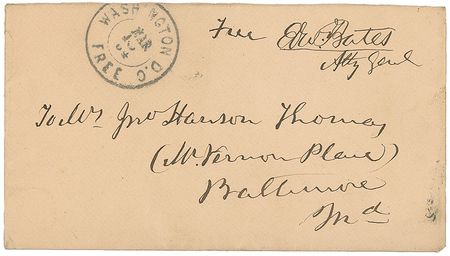 WASHINGTON D.C.
MAR
FREE
Free Edw. Bates
Atty Genl
To Mrs Jno Hanson Thomas,
(Mt. Vernon Place)
Baltimore
Md